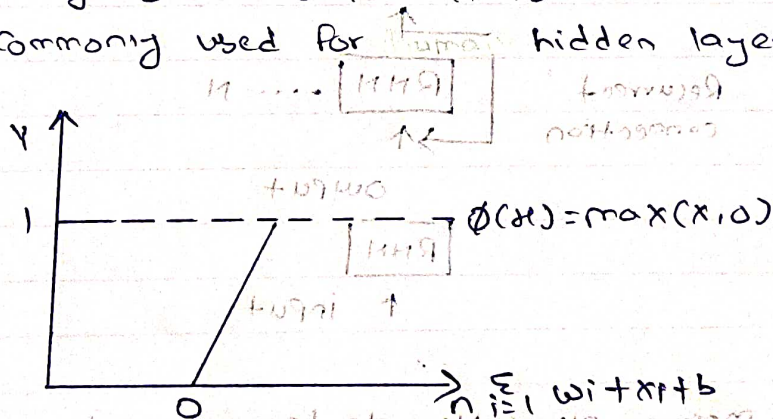 commonly used for hidden laye
Y
1
Ø(x) = max(x,0)
0
n Σ i=1 wi + xi + b